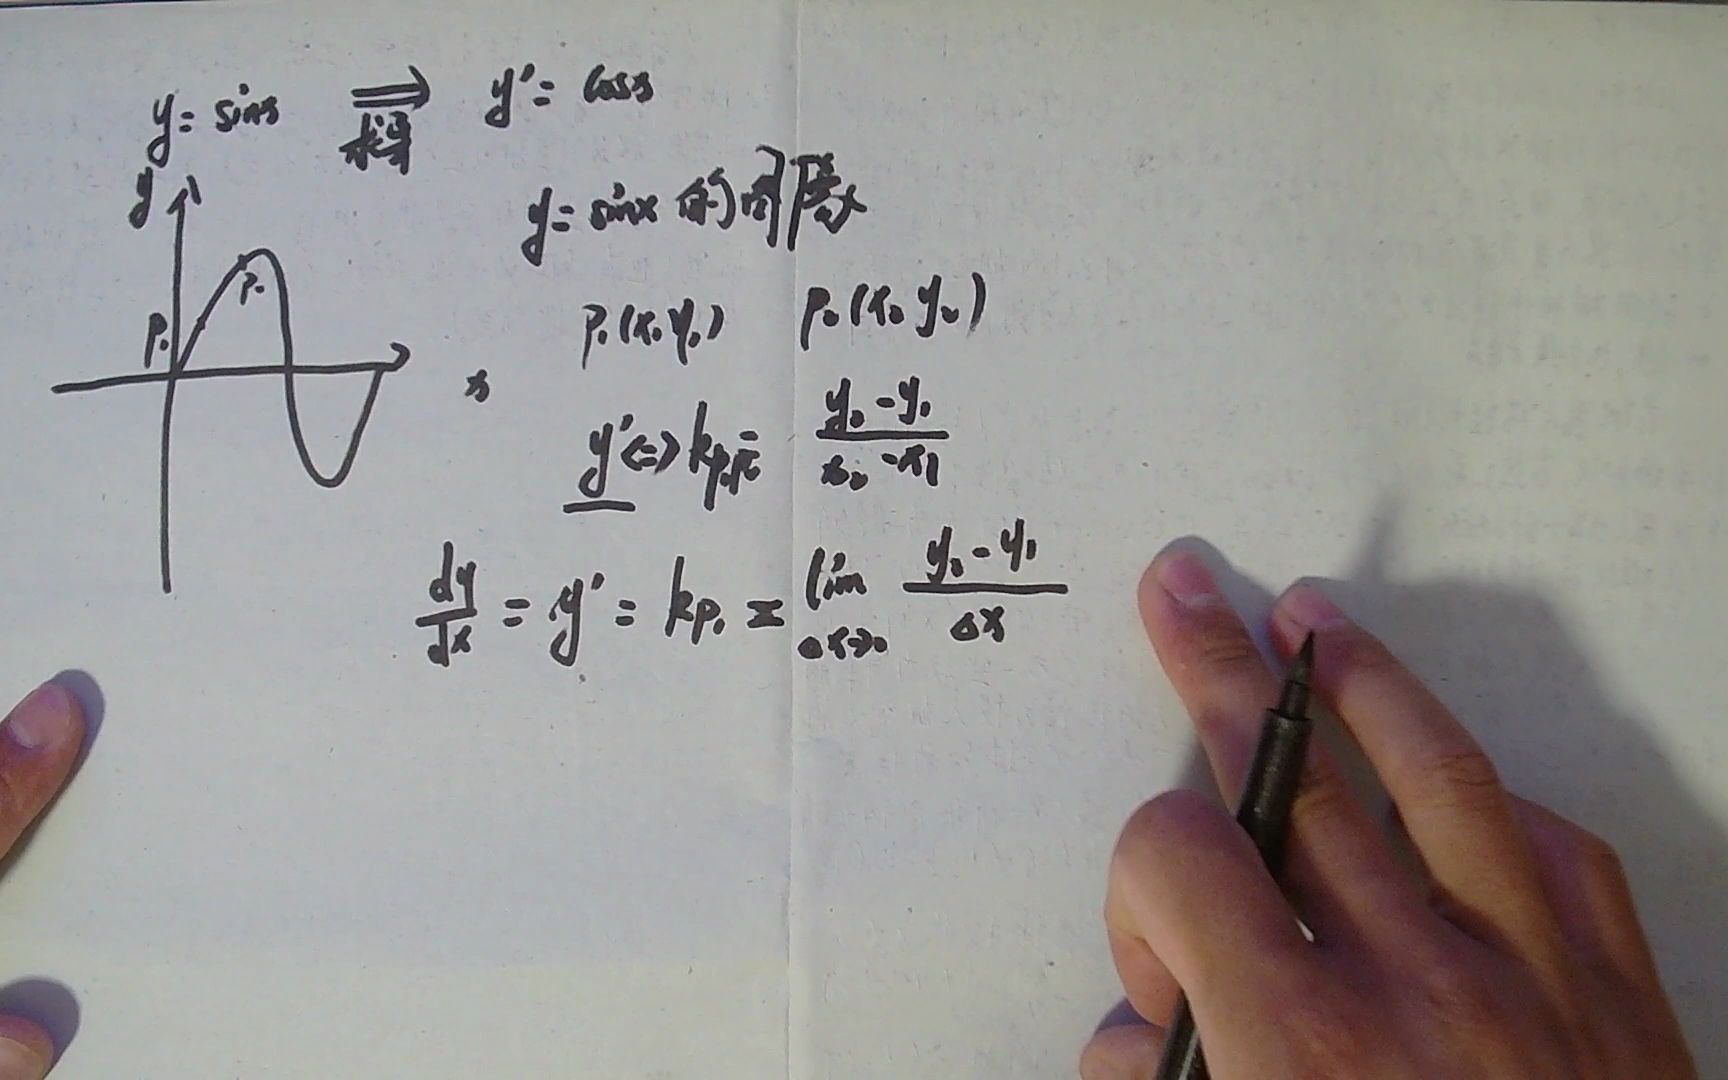 y = sinx ⇒ y' = cosx
求导
y
y = sinx 的
P₁ P₂
P₁(x₁ y₁) P₂(x₂ y₂)
x
y' <=> kp₁p₂ = (y₂ - y₁)/(x₂ - x₁)
dy/dx = y' = kp₁ = lim Δx→0 (y₂ - y₁)/Δx